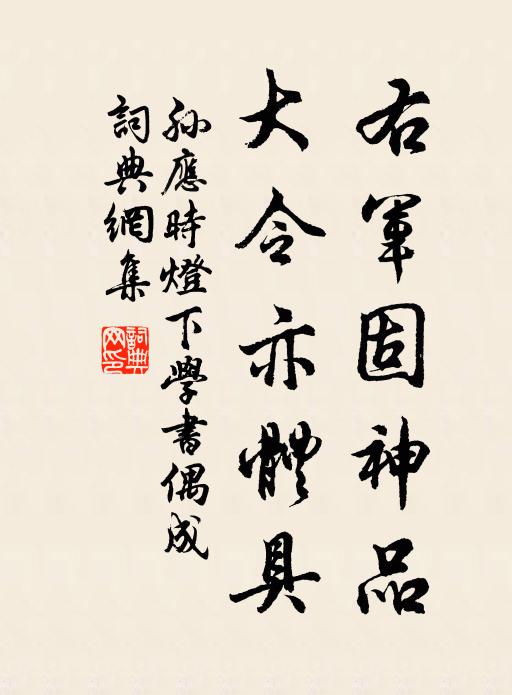 右軍固神品
大令亦體具
孫應時燈下學書偶成
詞典網集
詞典網印